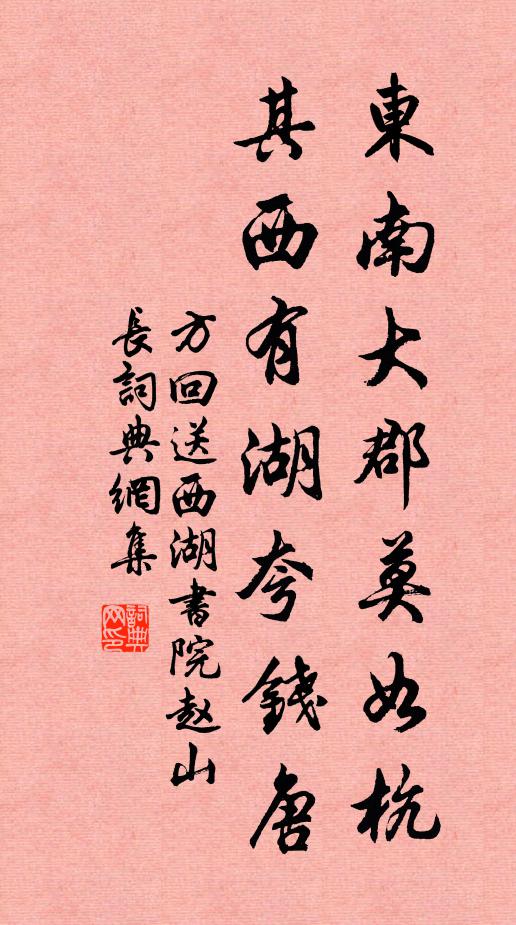 東南大郡莫如杭
其西有湖夸錢唐
方回送西湖書院赵山
長詞典網集
詞典
网印